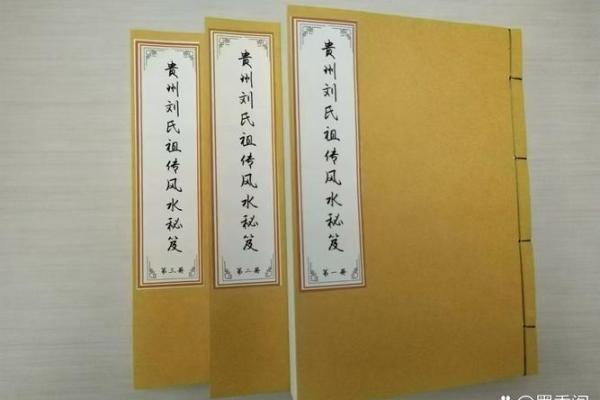 贵州刘氏祖传风水秘笈
第一册
贵州刘氏祖传风水秘笈
第二册
贵州刘氏祖传风水秘笈
第三册